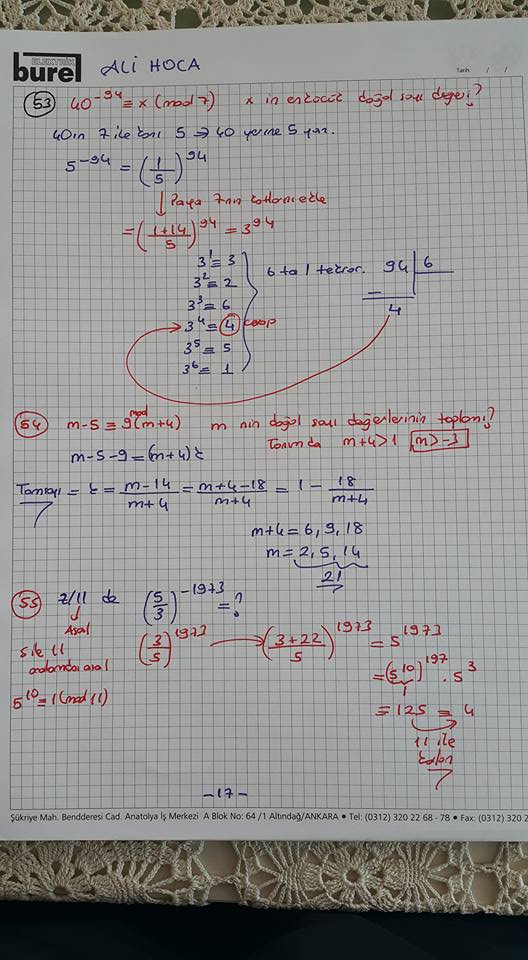 ELEKTRİK
burel ALİ HOCA
Tarih: / /
53 40^-94 ≡ x (mod 7) x in en küçük doğal sayı değeri?
40ın 7 ile kalanı 5 ⇒ 40 yerine 5 yaz.
5^-94 = (1/5)^94
↓ Paya 7nin katlarını ekle
= ((1+14)/5)^94 = 3^94
3^1 ≡ 3
3^2 = 2
3^3 ≡ 6
3^4 = 4 cevap
3^5 ≡ 5
3^6 ≡ 1
6 ta 1 tekrar.
94 | 6
4
54 m-5 ≡ 9 mod(m+4) m nin doğal sayı değerlerinin toplamı?
Tanımda m+4>1 m>-3
m-5-9=(m+4)k
Tamsayı = k = (m-14)/(m+4) = (m+4-18)/(m+4) = 1 - 18/(m+4)
m+4=6,9,18
m=2,5,14
21
55 Z/11 de (5/3)^-1973 = ?
Asal
5 ile 11
aralarında asal
5^10 ≡ 1 (mod 11)
(3/5)^1973 → ((3+22)/5)^1973 = 5^1973
=(5^10)^197 . 5^3
1
=125 ≡ 4
11 ile
kalan
-17-
Şükriye Mah. Bendderesi Cad. Anatolya İş Merkezi A Blok No: 64 /1 Altındağ/ANKARA • Tel: (0312) 320 22 68 - 78 • Fax: (0312) 320 2